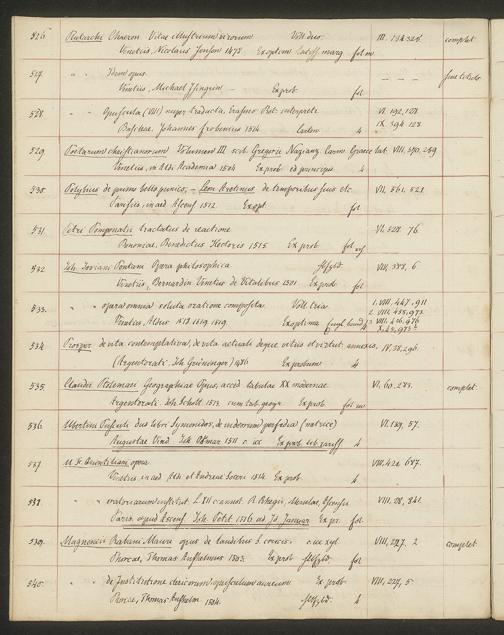 526 Plutarchi Chaeron. Vitae illustrium virorum Voll. duo. III. 134.328. complet.
Venetiis, Nicolaus Jenson 1478. Ex optim. marg. fol m
527 " " Idem opus. — — — sine titulo
Venetiis, — Ex prob fol
528. " " Opuscula (VIII) nuper traducta. Erasmo Rot. interprete VI. 192, 128
Basileae, Johannes Frobenius 1514. 4 IX 394 128
529 Poetarum christianorum Volumen III scil. Gregorii Nazianz. Carm. Graece lat. VIII, 390, 259
Venetiis, in Aldi Academia 1504 Ex prob ed princeps 4
530 Polybius de primo bello punico, — Leon. Aretinus de temporibus suis etc. VII, 561. 521
Parisiis, in aed Ascens 1512. Ex opt. fol
531. Petri Pomponatii tractatus de reactione VI. 328 76
Bononiae, Benedictus Hectoris 1515 Ex prob fol
532 Joh. Joviani Pontani Opera philosophica VIII, 383, 6
Venetiis, Bernardin Venetus de Vitalibus 1501 Ex prob fol
533. " " opera omnia soluta oratione composita Voll. tria. 1. VIII. 447, 911
2. VIII. 455, 973
Venetiis, Aldus 1518 1519. 1519. Ex optima 4
534 Prosper de vita contemplativa, de vita actuali deque vitiis et virtut. annexis. IV. 38, 296.
(Argentorati. Joh Grüninger) 1486 Ex probum 4
535. Claudii Ptolemaei Geographiae Opus, acced tabulae XX modernae. VI. 60, 283. complet.
Argentorati. Joh. Schott. 1513. cum tab. geogr. Ex prob. fol m
536 Ubertini Pusculi duo libri Symonidos, de iudaeorum perfidia (metrice) VI. 139, 57.
Augustae Vind Joh Otmar 1511 c. ic Ex prob. lib rariss 4
537 M. F. Quintiliani opera VIII, 424 687.
Venetiis, in aed Aldi et Andreae Soceri 1514. Ex prob. 4
538 " " oratoriarum institut. L. XII c annot. R. Regii, Merulae, VIII, 28, 841.
Paris. apud Ascens. Joh. Petit 1516 ad Id. Januar Ex pr. fol.
539. Magnencii Rabani Mauri opus de laudibus S. crucis. c. ic xyl. VIII, 227. 2 complet.
Phorcae, Thomas Anshelmus 1503. Ex prob fol
540. " " de Institutione clericorum opusculum aureum Ex prob VIII, 227, 5.
Phorcae, Thomas Anshelm 1504. 4